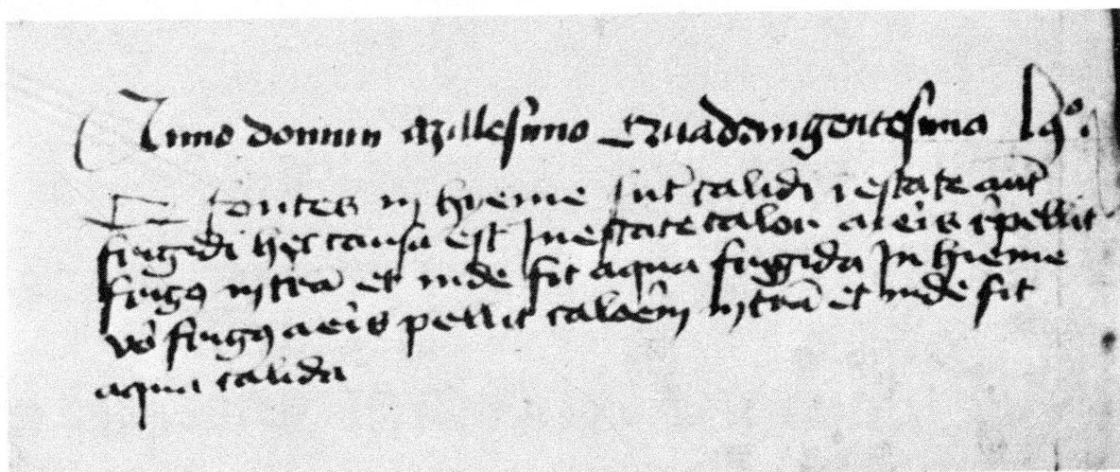 Anno domini Millesimo Quadringentesimo
fontes in hieme sūt calidi i estate aut̄
frigidi hec causa est In estate calor aeris pellit
frig9 in trā et inde fit aqua frigida In hieme
vo frig9 aeris pellit calorem in trā et inde fit
aqua calida